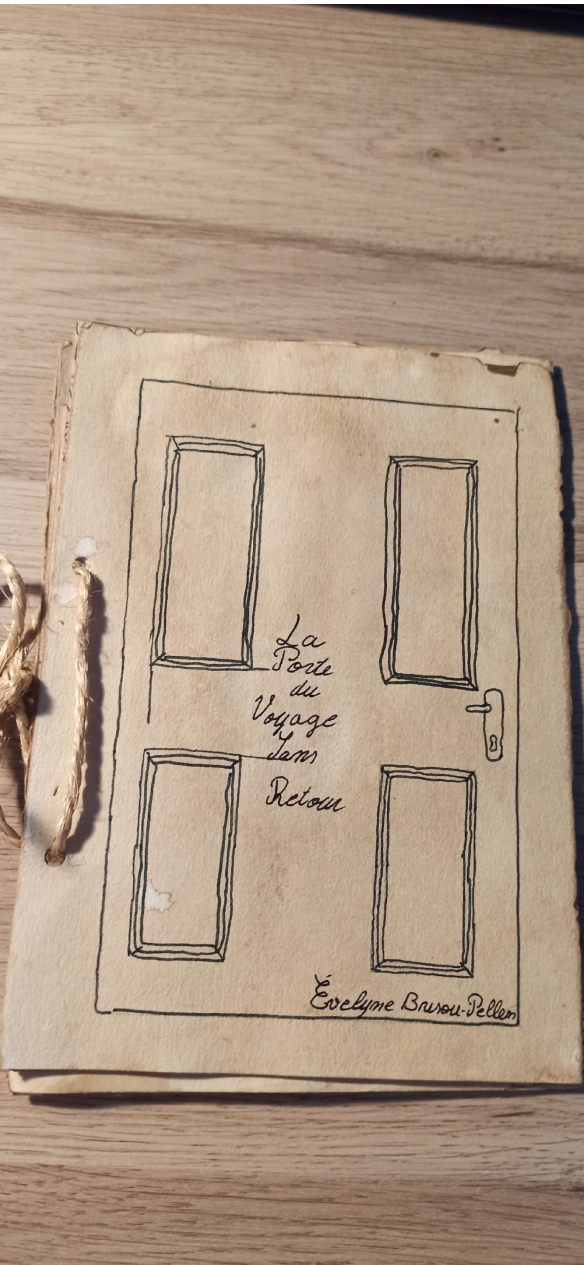 La
Porte
du
Voyage
Sans
Retour
Évelyne Brisou-Pellen